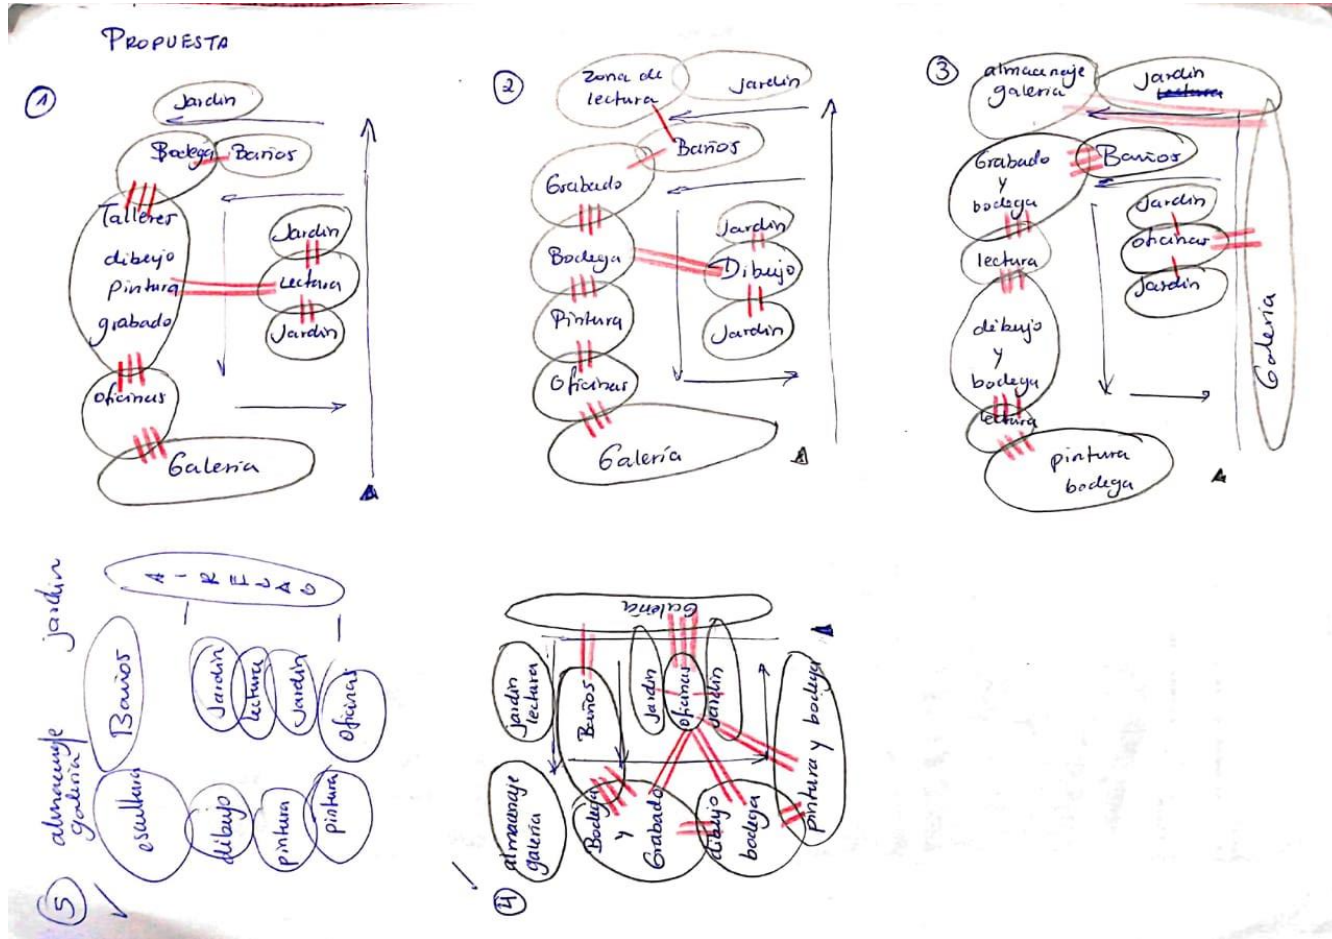 PROPUESTA
1
Jardin
Bodega
Baños
Talleres
dibujo
pintura
grabado
Jardin
Lectura
Jardin
oficinas
Galeria
2
Zona de
lectura
Jardin
Baños
Grabado
Bodega
Jardin
Dibujo
Jardin
Pintura
Oficinas
Galería
3
almacenaje
galeria
Jardin
lectura
Grabado
y
bodega
Baños
Jardin
oficinas
Jardin
lectura
dibujo
y
bodega
lectura
pintura
bodega
Galeria
5
almacenaje
galeria
jardin
Baños
Jardin
lectura
Jardin
oficinas
escultura
dibujo
pintura
pintura
4
Galeria
Jardin
lectura
Baños
Jardin
oficinas
Jardin
pintura y bodega
almacenaje
galería
Bodega
y
Grabado
dibujo
bodega